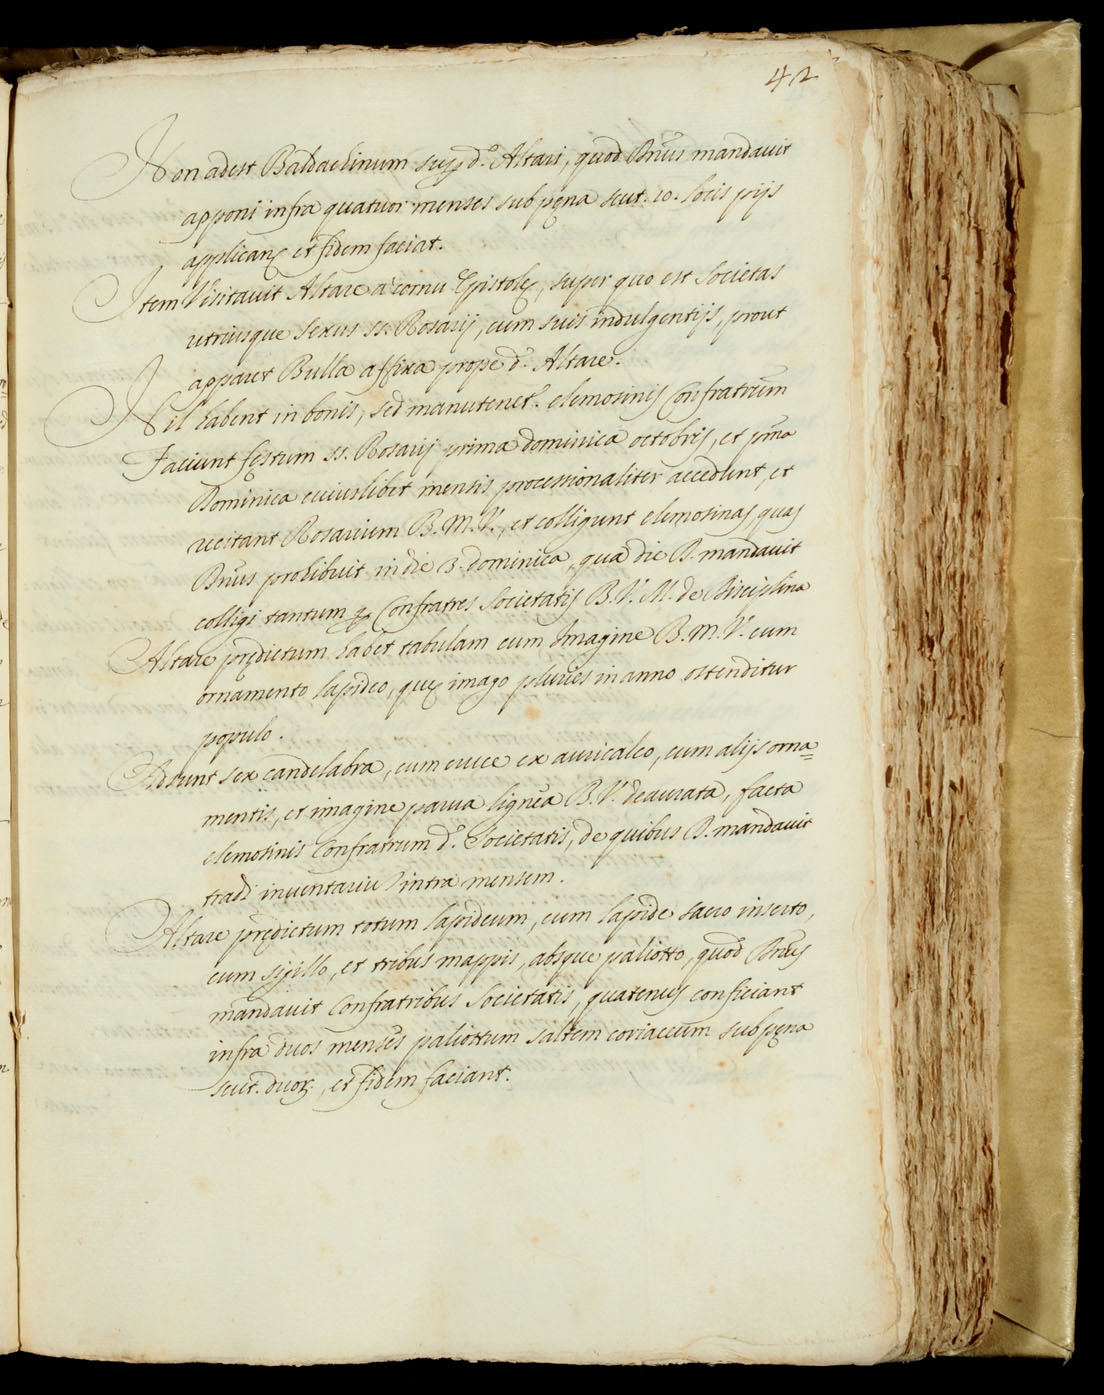 42
Non adest Baldachinum sup. d.º Altari, quod Dnûs mandavit
apponi infra quatuor menses sub pęna scut. 10. locis pijs
applican: et fidem faciat.
Item Visitavit Altare à cornu Epistolę, super quo est Societas
utriusque sexus ss. Rosarij, cum suis indulgentijs, prout
apparet Bulla affixa prope d.º Altare.
Nil habent in bonis, sed manutenet.r elemosinis Confratrum
Faciunt fęstum ss. Rosarij prima dominica octobris, et pma
Dominica cuiuslibet mensis processionaliter accedunt, et
recitant Rosarium B. M. V., et colligunt elemosinas, quas
Dnûs prohibuit in die 3. dominica, qua die D. mandavit
colligi tantum p Confratres Societatis B. V. M. de Disciplina
Altare prędictum habet tabulam cum Imagine B. M. V. cum
ornamento lapideo, quę imago pluries in anno ostenditur
populo.
Adsunt sex candelabra, cum cruce ex auricalco, cum alijs orna=
mentis, et imagine parva lignea B. V. deaurata, facta
elemosinis Confratrum d.º Societatis, de quibus D. mandavit
tradi inventariũ intra mensem.
Altare prędictum totum lapideum, cum lapide sacro inserto,
cum sigillo, et tribus mappis, absque paliotto, quod Dnûs
mandavit Confratribus Societatis, quatenus conficiant
infra duos menses paliottum saltem coriaceum sub pęna
scut. duor:, et fidem faciant.